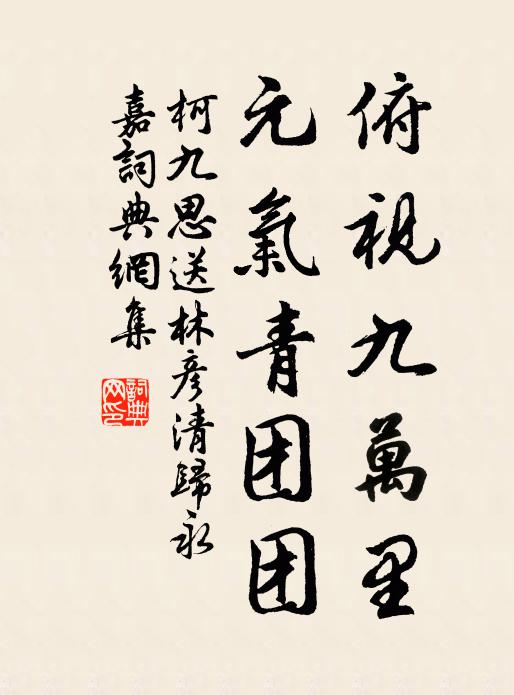 俯視九萬里
元氣青团团
柯九思送林彦清歸永
嘉詞典網集
詞典网印